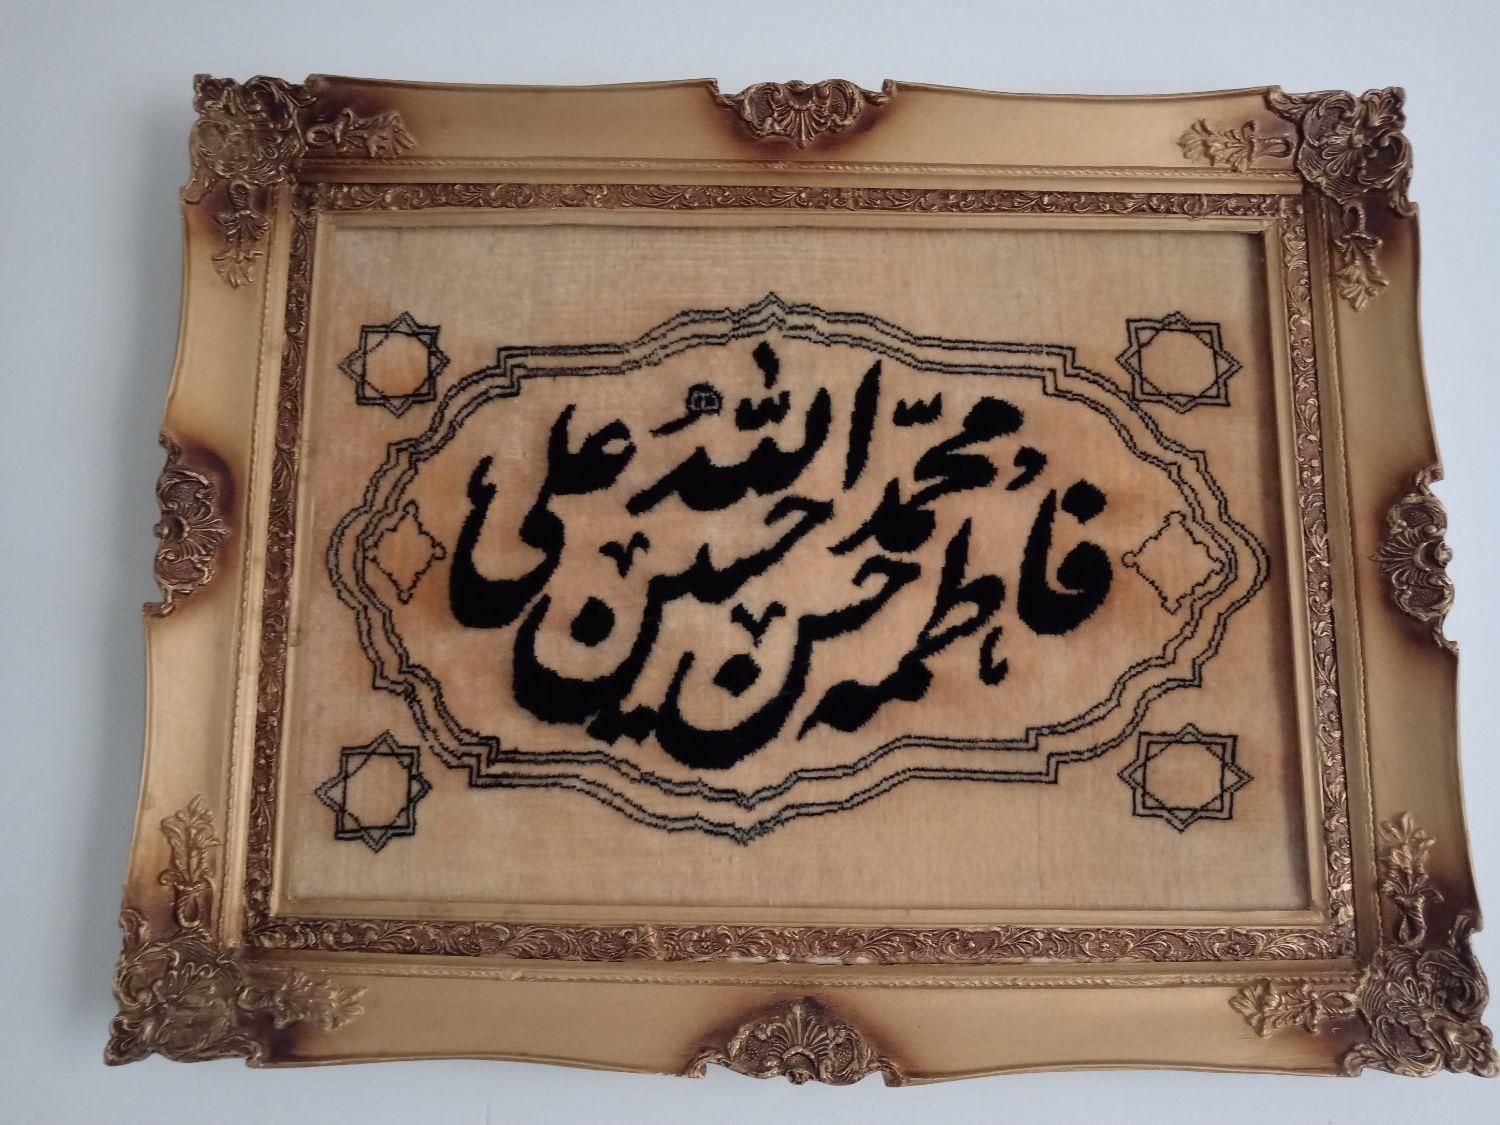 الله محمد علی
فاطمه حسن حسین